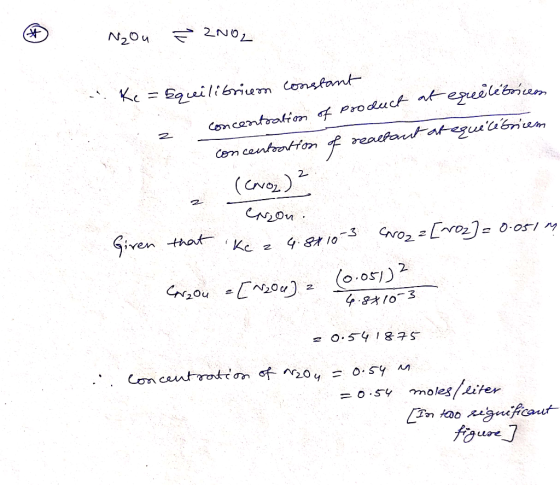 * N2O4 ⇌ 2NO2
∴ Kc = Equilibrium constant
= concentration of product at equilibrium / concentration of reactant at equilibrium
= (CNO2)^2 / CN2O4.
Given that Kc = 4.8*10^-3 CNO2 = [NO2] = 0.051 M
CN2O4 = [N2O4] = (0.051)^2 / 4.8*10^-3
= 0.541875
∴ concentration of N2O4 = 0.54 M
= 0.54 moles/liter
[In too significant
figure]